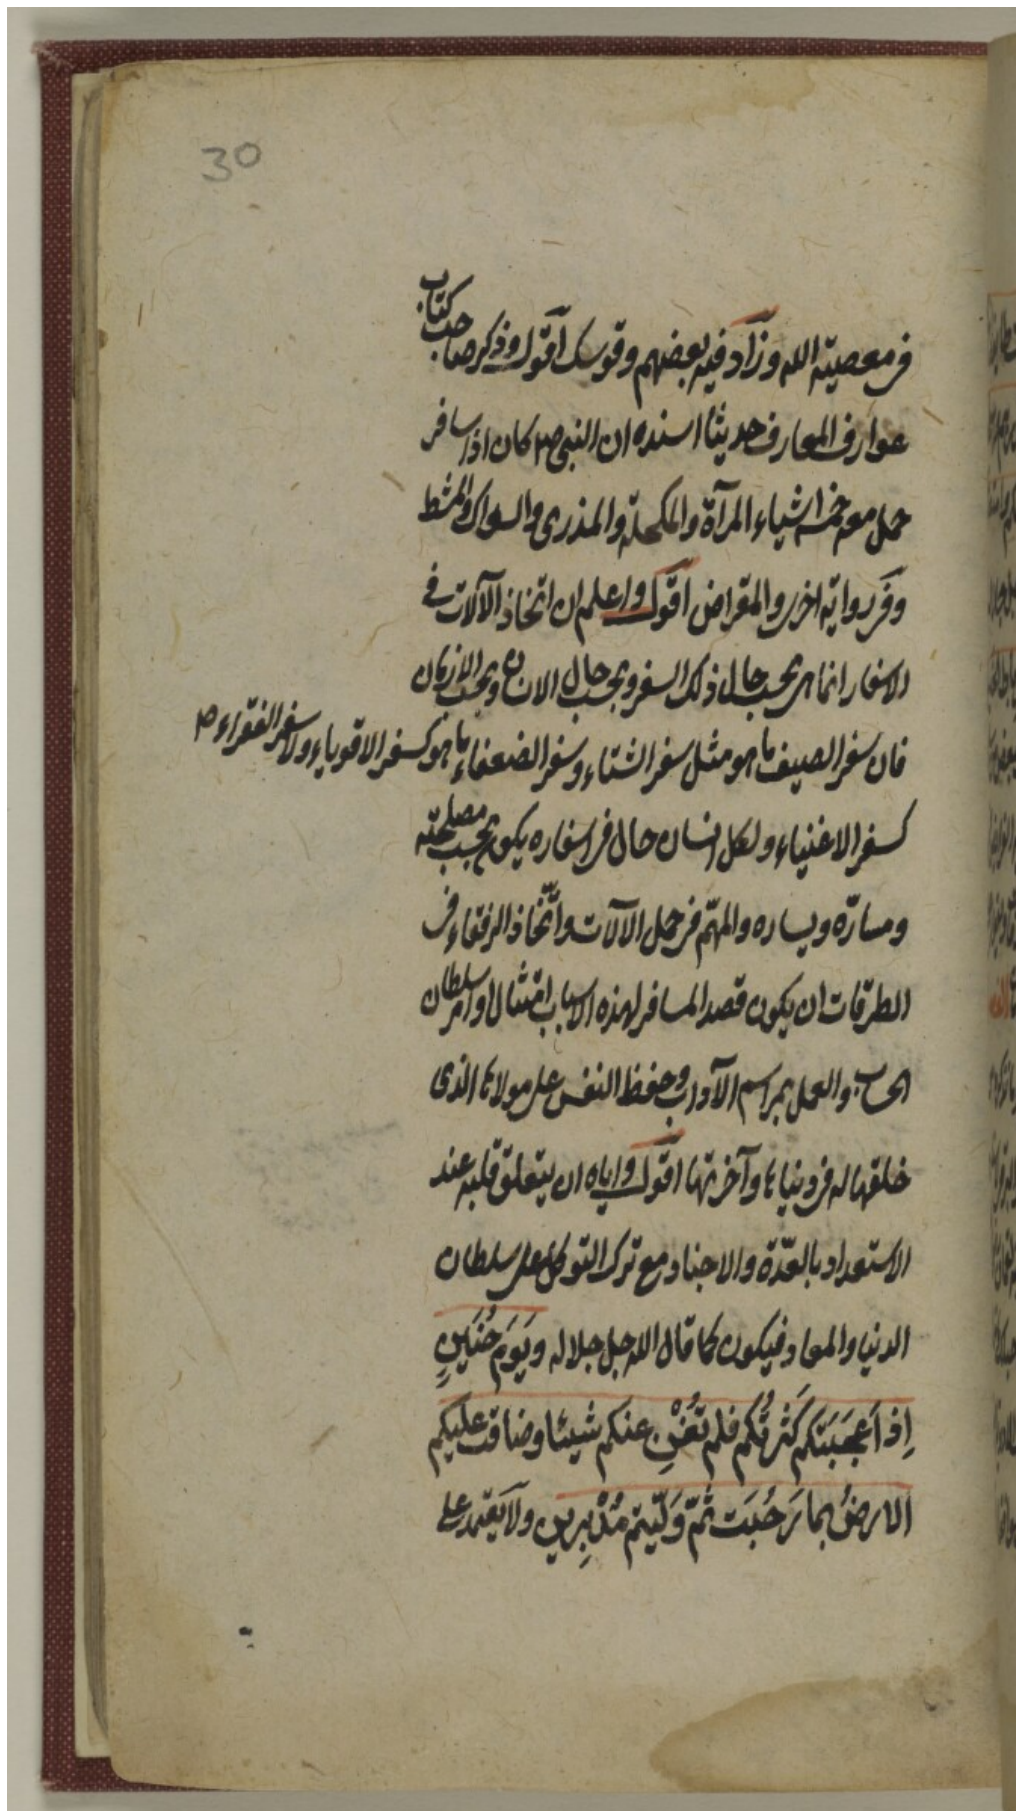 30
في معصية الله وزاد فيه بعضهم وقوسك أقول وذكر صاحب كتاب
عوارف المعارف حديثا اسنده ان النبي ص كان اذا سافر
حمل معه خمسة اشياء المرآة والمكحلة والمذرى والسواك والمشط
وفي رواية اخرى والمقراض اقول واعلم ان اتخاذ الآلات في
الاسفار انما هي بحسب حال ذلك السفر وبحسب حال الانسان وبحسب الازمان
فان سفر الصيف ما هو مثل سفر الشتاء وسفر الضعفاء ما هو كسفر الاقوياء ولا سفر الفقراء
كسفر الاغنياء ولكل انسان حال في اسفاره يكون بحسب مصلحته
ومسارّه ويساره والمهمّ في حمل الآلات واتّخاذ الرفقاء في
الطرقات ان يكون قصد المسافر لهذه الاسباب امتثال اوامر سلطان
الحساب والعمل بمراسم الآداب وحفظ النفس على مولاها الذي
خلقها له في دنياها وآخرتها اقول واياه ان يتعلق قلبه عند
الاستعداد بالعدّة والاجناد مع ترك التوكل على سلطان
الدنيا والمعاد فيكون كما قال الله جل جلاله ويَومَ حُنَينٍ
اِذ اَعجَبَتكم كَثرتُكم فلم تُغْنِ عنكم شيئا وضاقت عليكم
الارضُ بما رَحُبَت ثمّ وَلّيتم مُدْبِرين ولا يعتمد على